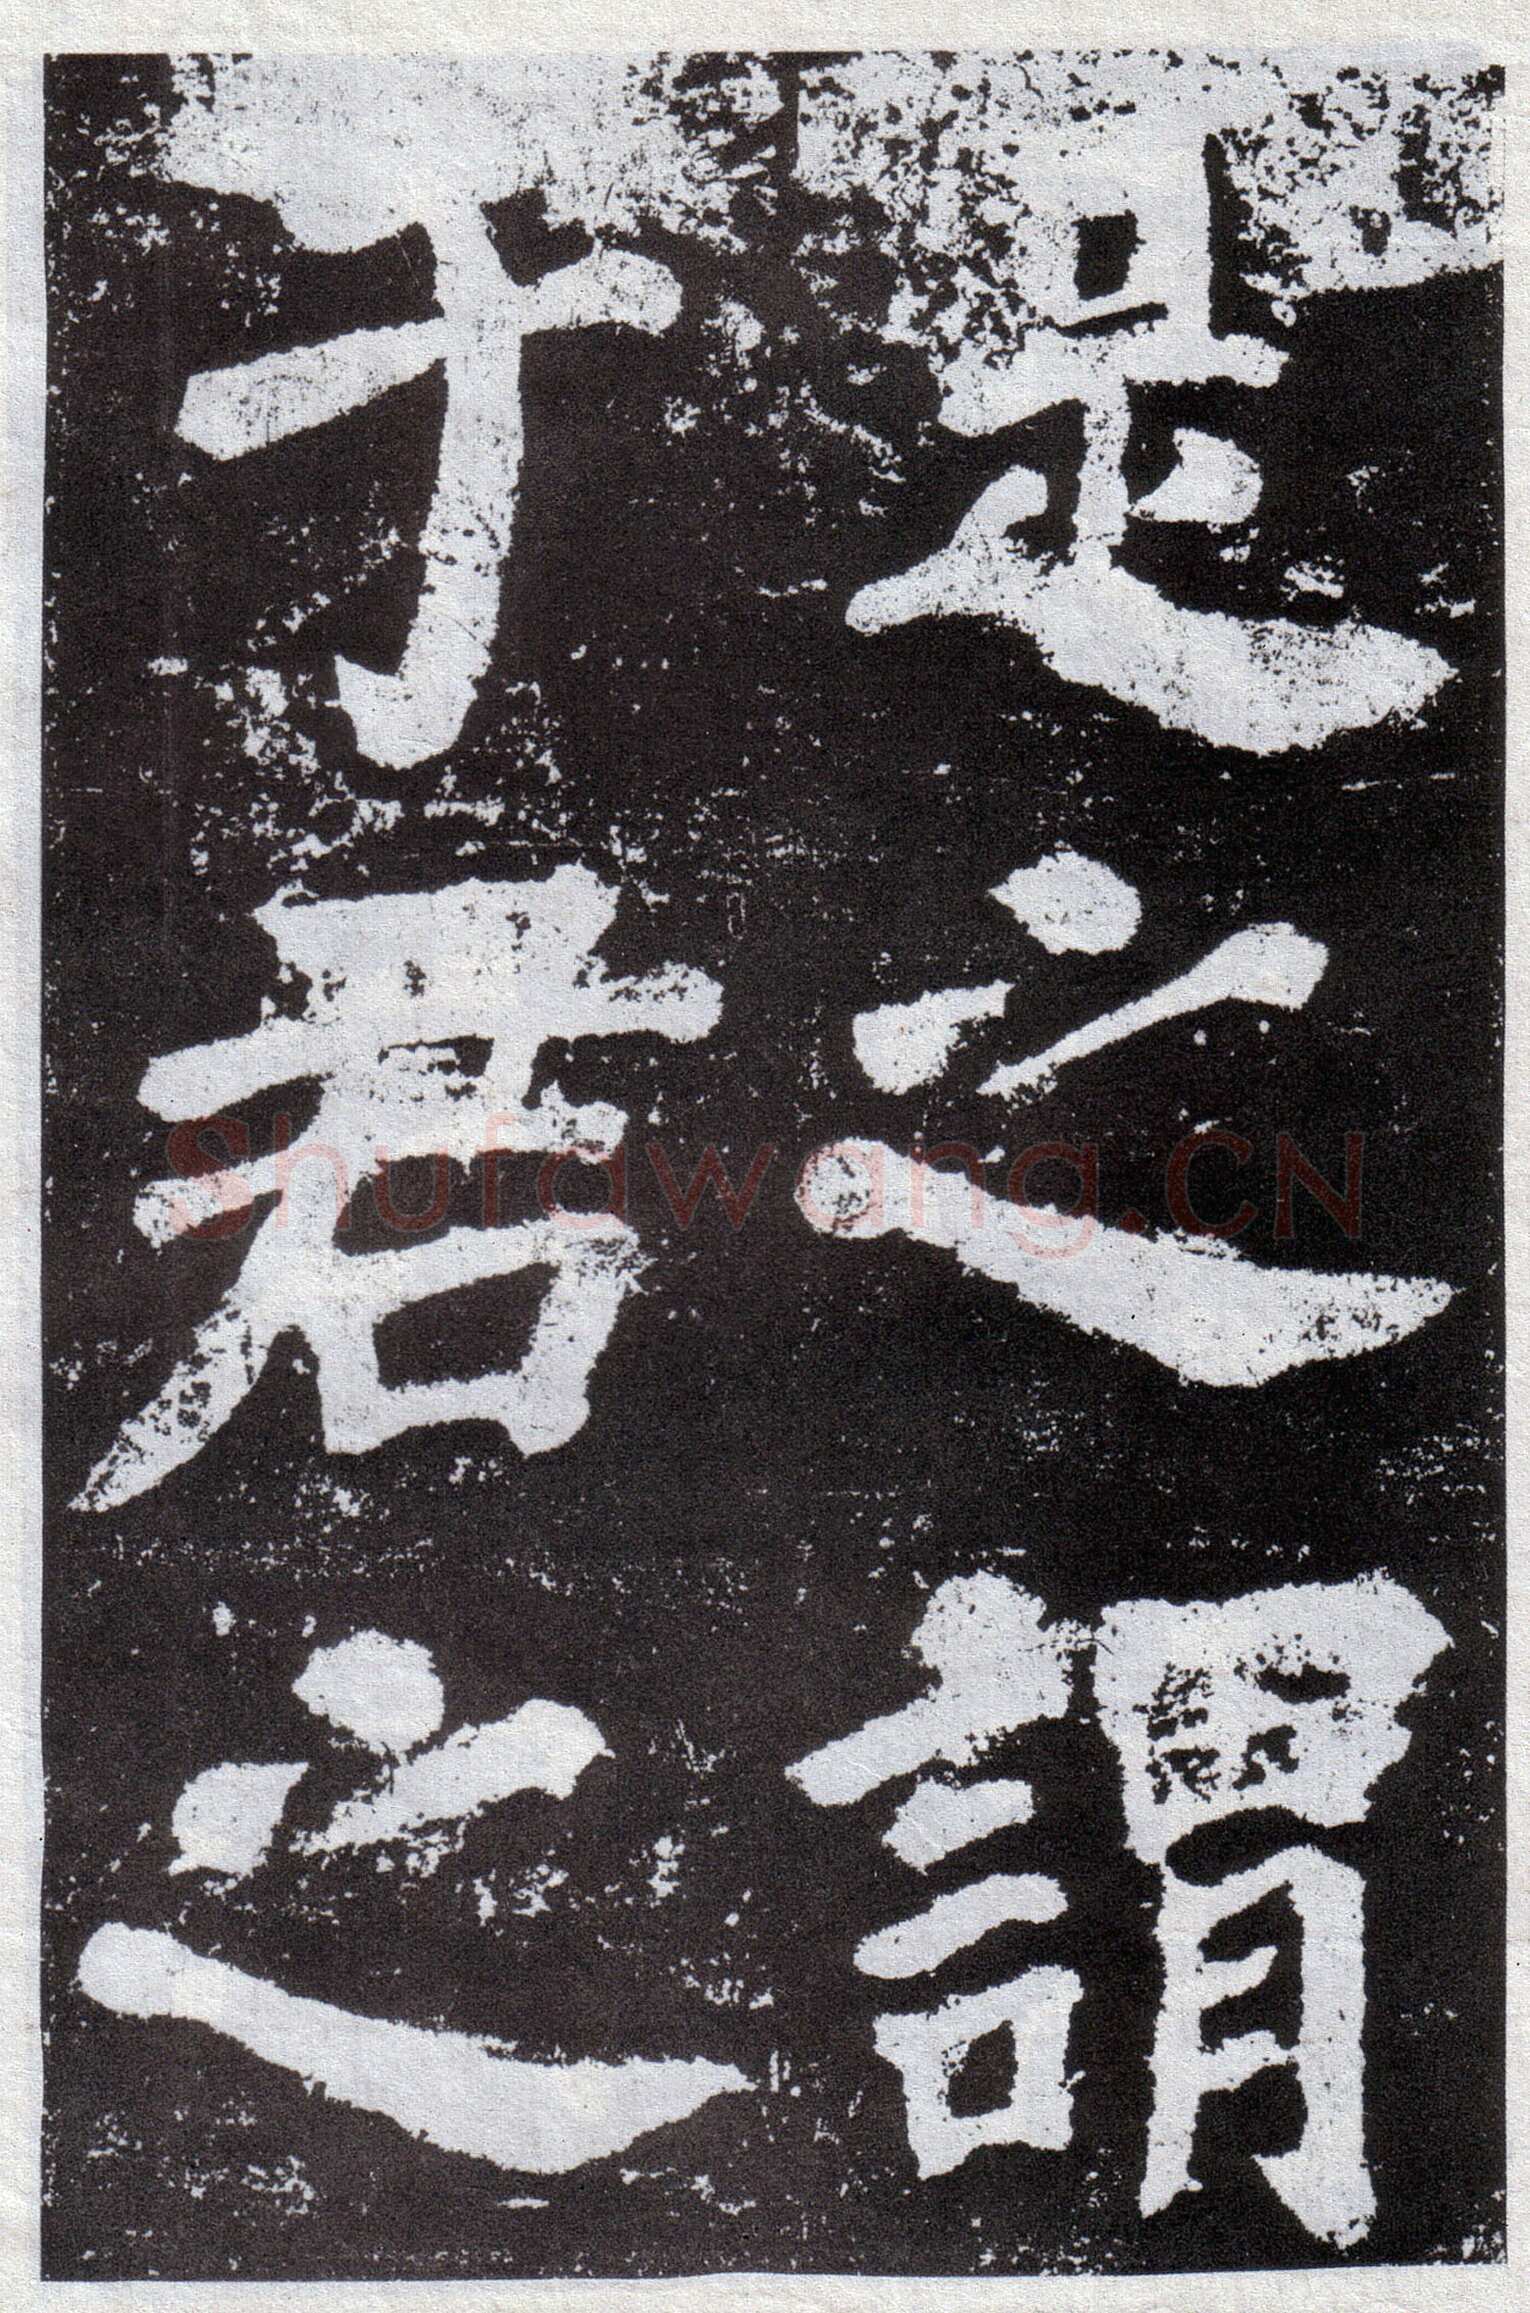 是之謂
乎君之
Shufawang.CN